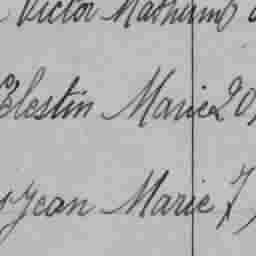 Victor Mathurin
Célestin Marie 20
Jean Marie 7